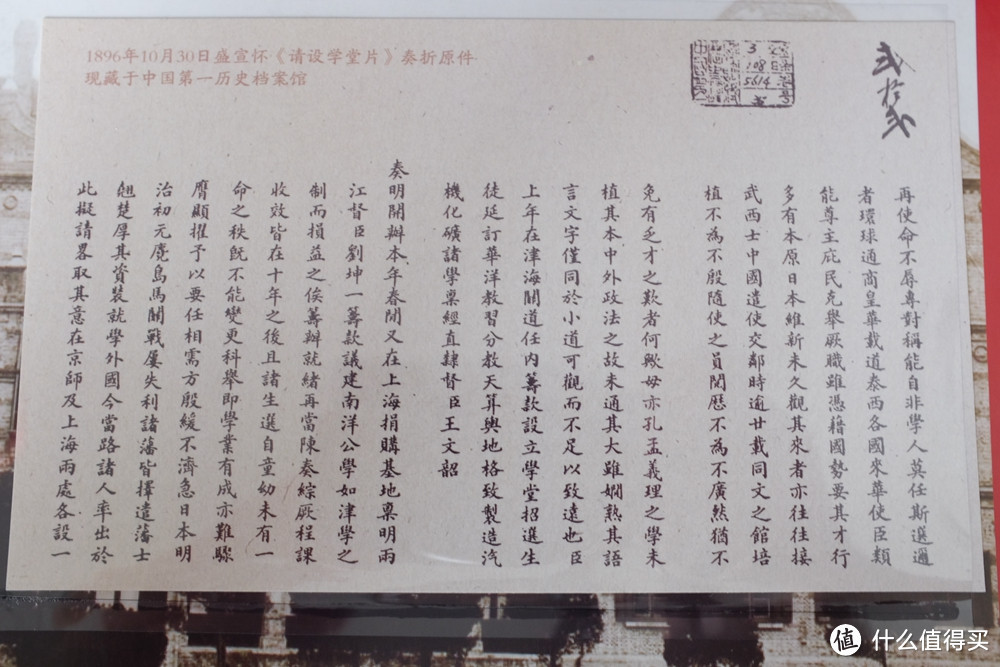 1896年10月30日盛宣怀《请设学堂片》奏折原件
现藏于中国第一历史档案馆
3
108
5614
再使命不辱專對稱能自非學人莫任斯選過
者環球通商皇華載道泰西各國來華使臣類
能尊主庇民克舉厥職雖憑藉國勢要其才行
多有本原日本維新未久觀其來者亦往往接
武西士中國遣使交鄰時逾廿載同文之館培
植不為不殷隨使之員閱歷不為不廣然猶不
免有乏才之歎者何歟毋亦孔孟義理之學未
植其本中外政法之故未通其大雖嫻熟其語
言文字僅同於小道可觀而不足以致遠也臣
上年在津海關道任內籌款設立學堂招選生
徒延訂華洋教習分教天算輿地格致製造汽
機化礦諸學稟經直隸督臣王文韶
奏明開辦本年春間又在上海捐購基地稟明兩
江督臣劉坤一籌款議建南洋公學如津學之
制而損益之俟籌辦就緒再當陳奏綜厥程課
收效皆在十年之後且諸生選自童幼未有一
命之秩既不能變更科舉即學業有成亦難驟
膺顯擢予以要任相需方殷緩不濟急日本明
治初元鹿島馬關戰屢失利諸藩皆擇遣藩士
翹楚厚其資裝就學外國今當路諸人率出於
此擬請畧取其意在京師及上海兩處各設一
值 什么值得买